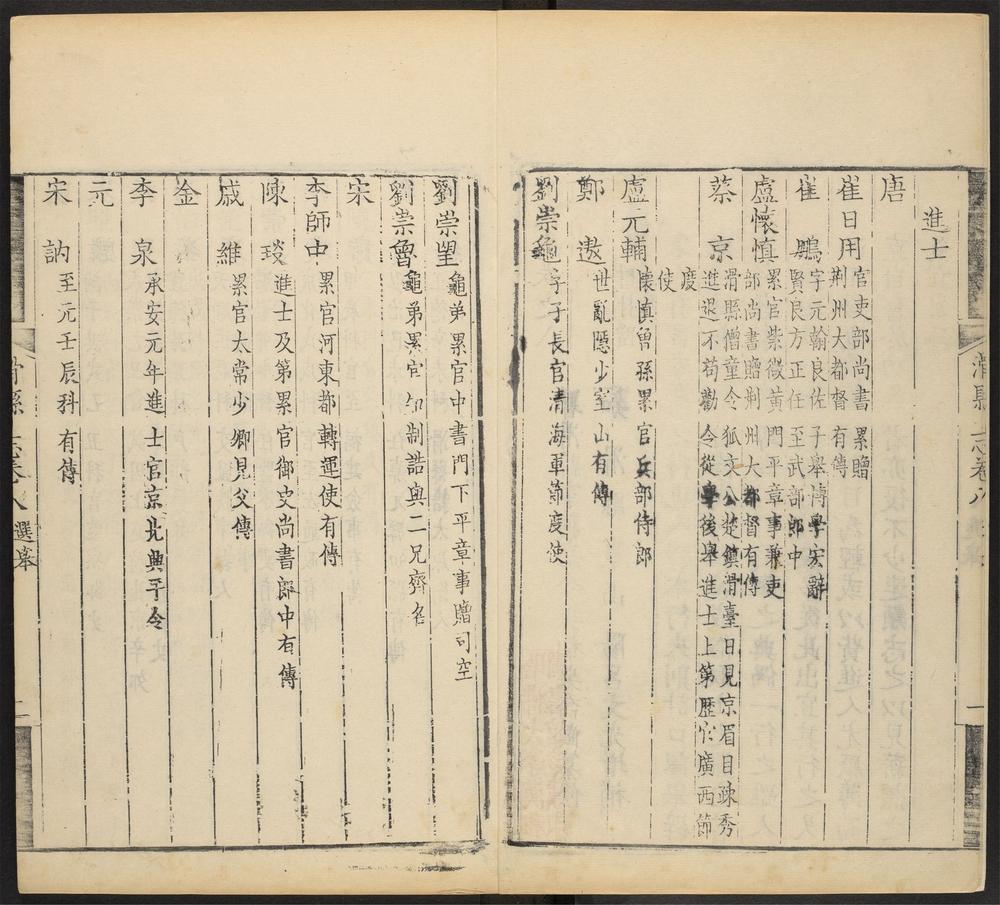 進士
唐
崔日用
官吏部尚書累贈
荆州大都督有傳
崔鵬
字元翰良佐子舉博學宏辭
賢良方正任至武部郎中
盧懷慎
累官紫微黃門平章事兼吏
部尚書贈荆州大都督有傳
蔡京
滑縣僧童令狐文公楚鎮滑臺日見京眉目疎秀
進退不苟勸令從學後舉進士上第歷官廣西節
度
使
盧元輔
懷慎曾孫累官兵部侍郎
鄭遨
世亂隱少室山有傳
劉崇龜
字子長官清海軍節度使
滑縣志卷八
一
劉崇望
龜弟累官中書門下平章事贈司空
劉崇魯
龜弟累官知制誥與二兄齊名
宋
李師中
累官河東都轉運使有傳
陳琰
進士及第累官御史尚書郎中有傳
戚維
累官太常少卿見父傳
金
李泉
承安元年進士官京兆興平令
元
宋訥
至元壬辰科有傳
滑縣志卷八
選舉
二